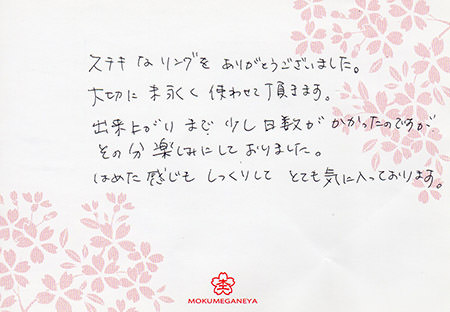 ステキなリングをありがとうございました。
大切に末永く使わせて頂きます。
出来上がりまで少し日数がかかったのですが
その分楽しみにしておりました。
はめた感じもしっくりしてとても気に入っております。
MOKUMEGANEYA